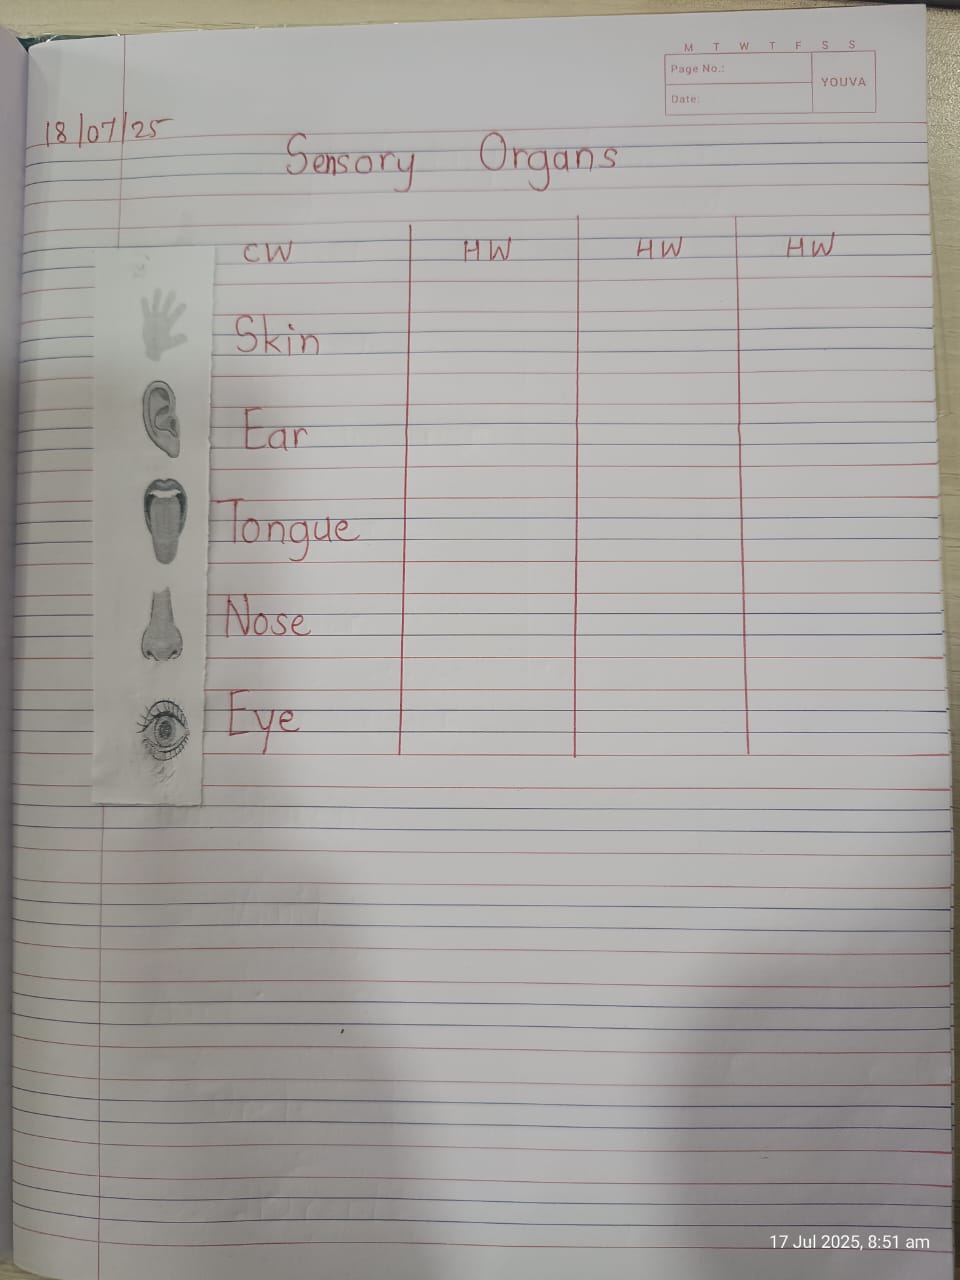 M T W T F S S
Page No.:
YOUVA
Date:
18/07/25
Sensory Organs
CW HW HW HW
Skin
Ear
Tongue
Nose
Eye
17 Jul 2025, 8:51 am